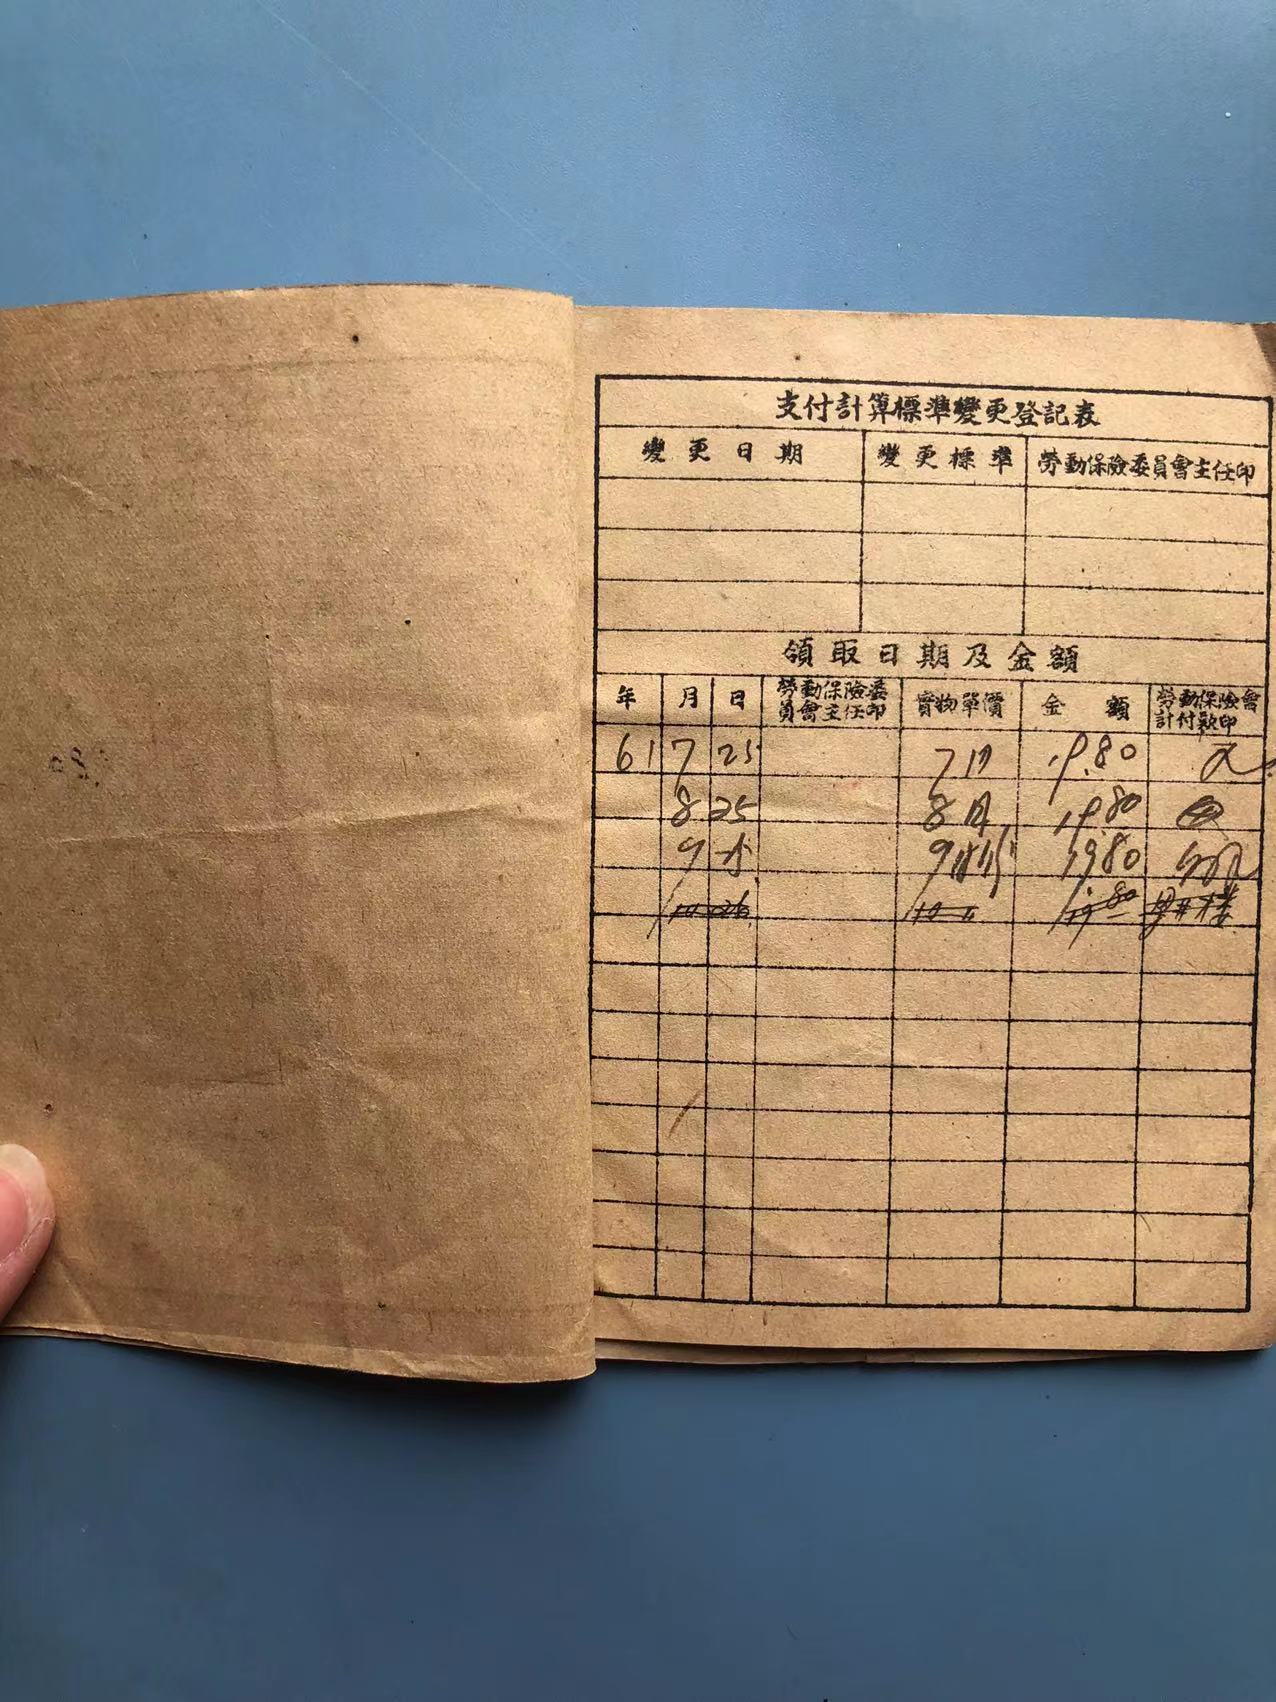 支付計算標準變更登記表
變更日期 變更標準 勞動保險委員會主任印
領取日期及金額
年 月 日 勞動保險委員會主任印 實物單價 金額 勞動保險會計付款印
61 7 25 7月 19.80
8 25 8月 19.80
9 9 19.80
10 10 19.80